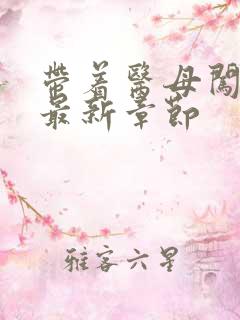 带着医母闯
最新章节
雅客六星